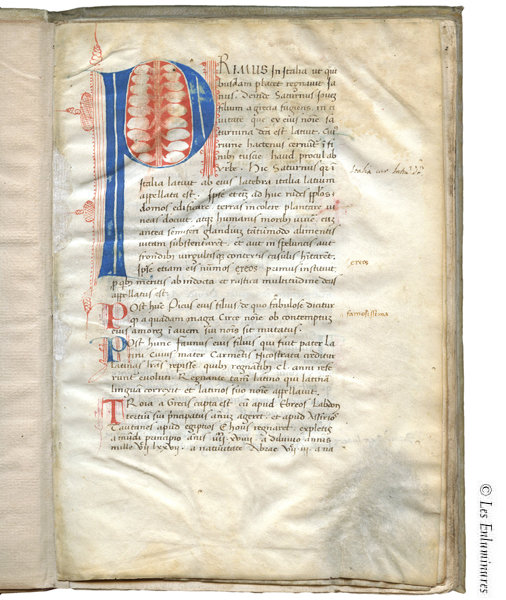 PRIMUS In Italia ut qui
busdam placet regnauit Ja
nus. Deinde Saturnus Jouez
filium a grecia fugiens. in ci
uitate que ex eius noie sa
turnina dca est latuit. Cui
ruine hactenus cernunt i fi
nibus tuscie haud procul ab
vrbe. Hic Saturnus qr i
italia latuit ab eius latebra italia latium
appellata est. Ipse etiaz ad huc rudes pplos
domos edificare terras incolere plantare ui
neas docuit atque humanis moribus uiuere. cuz
antea semifera glandium tantummodo alimentis
uitam substentaret. et aut in speluncis aut
frondibus uirgultisque contextis casulis hitaret.
Ipse etiam eis numos ereos primus instituit
p quibus meritis ab indocta et rustica multitudine deus
appellatus est.
Post hunc Picus eius filius. de quo fabulose dicitur
qd a quadam maga Circe noie ob contemptum
eius amorez i auem sui nois sit mutatus.
Post hunc faunus eius filius qui fuit pater La
tini Cuius mater Carmentis litteras creditur
Latinas repperisse. quibus regnantibus cl. anni refe
runtur euoluti. Regnante tamen latino qui latinam
linguam correxit et latinos suo noie appellauit.
Troia a Grecis capta est. cum apud Ebreos Labdon
tertium sui principatus annum ageret. et apud Assirios
Tautanes apud egiptios Thous regnaret. expletis
a mundi principio annis a diluuio annis
mille a natiuitate Abrae a na
ereos
famosissima
© Les Enluminures